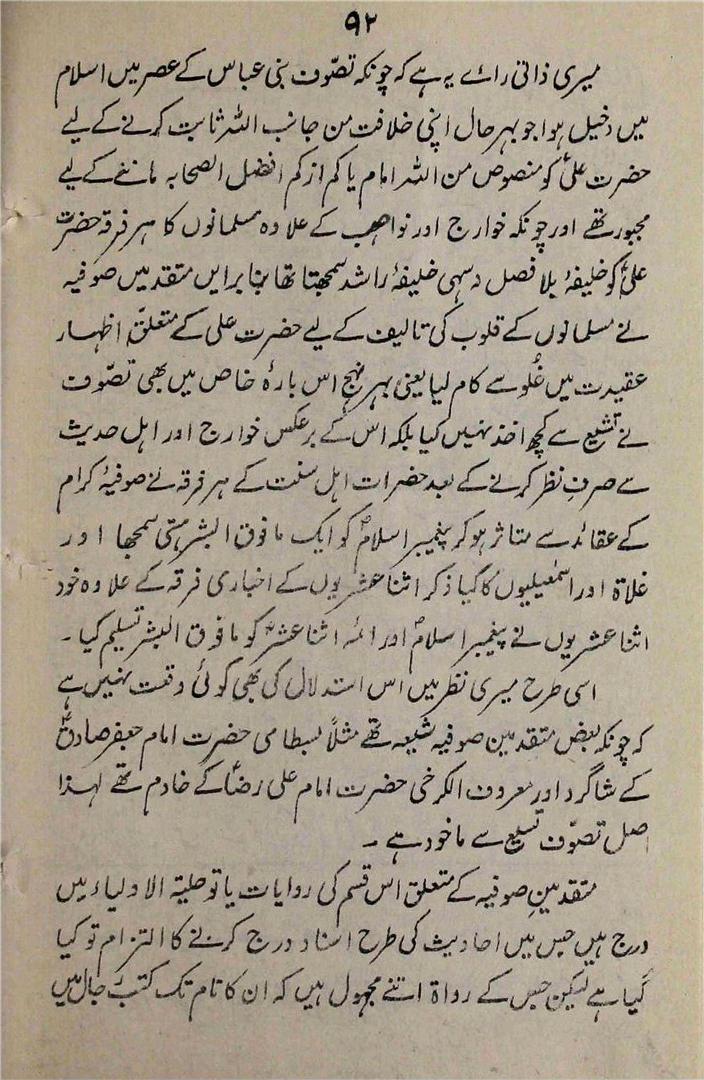 ۹۲
میری ذاتی رائے یہ ہے کہ چونکہ تصوّف بنی عباس کے عصر میں اسلام
میں دخیل ہوا جو بہر حال اپنی خلافت من جانب اللہ ثابت کرنے کے لیے
حضرت علیؑ کو منصوص من اللہ امام یا کم از کم افضل الصحابہ ماننے کے لیے
مجبور تھے اور چونکہ خوارج اور نواصب کے علاوہ مسلمانوں کا ہر فرقہ حضرت
علیؑ کو خلیفۂ بلا فصل نہ سہی خلیفۂ راشد سمجھتا تھا بنا برایں متقدمیں صوفیہ
نے مسلمانوں کے قلوب کی تالیف کے لیے حضرت علی کے متعلق اظہار
عقیدت میں غُلو سے کام لیا یعنی بہر نہج اس بارۂ خاص میں بھی تصوّف
نے تشیع سے کچھ اخذ نہیں کیا بلکہ اس کے برعکس خوارج اور اہل حدیث
سے صرفِ نظر کرنے کے بعد حضرات اہل سنت کے ہر فرقہ نے صوفیۂ کرام
کے عقائد سے متاثر ہو کر پیغمبر اسلامؐ کو ایک مافوق البشر ہستی سمجھا اور
غلاۃ اور اسمٰعیلیوں کا کیا ذکر اثنا عشریوں کے اخباری فرقہ کے علاوہ خود
اثنا عشریوں نے پیغمبر اسلامؐ اور ائمہ اثنا عشرؑ کو مافوق البشر تسلیم کیا۔
اسی طرح میری نظر میں اس استدلال کی بھی کوئی وقعت نہیں ہے
کہ چونکہ بعض متقدمین صوفیہ شیعہ تھے مثلاً بسطامی حضرت امام جعفر صادقؑ
کے شاگرد اور معروف الکرخی حضرت امام علی رضاؑ کے خادم تھے لہٰذا
اصل تصوّف تسیع سے ماخوذ ہے ۔
متقدمینِ صوفیہ کے متعلق اس قسم کی روایات یا تو حلیۃ الاولیاء میں
درج ہیں جس میں احادیث کی طرح اسناد درج کرنے کا التزام تو کیا
گیا ہے لیکن جس کے رواۃ اتنے مجہول ہیں کہ ان کا نام تک کتب رجال میں